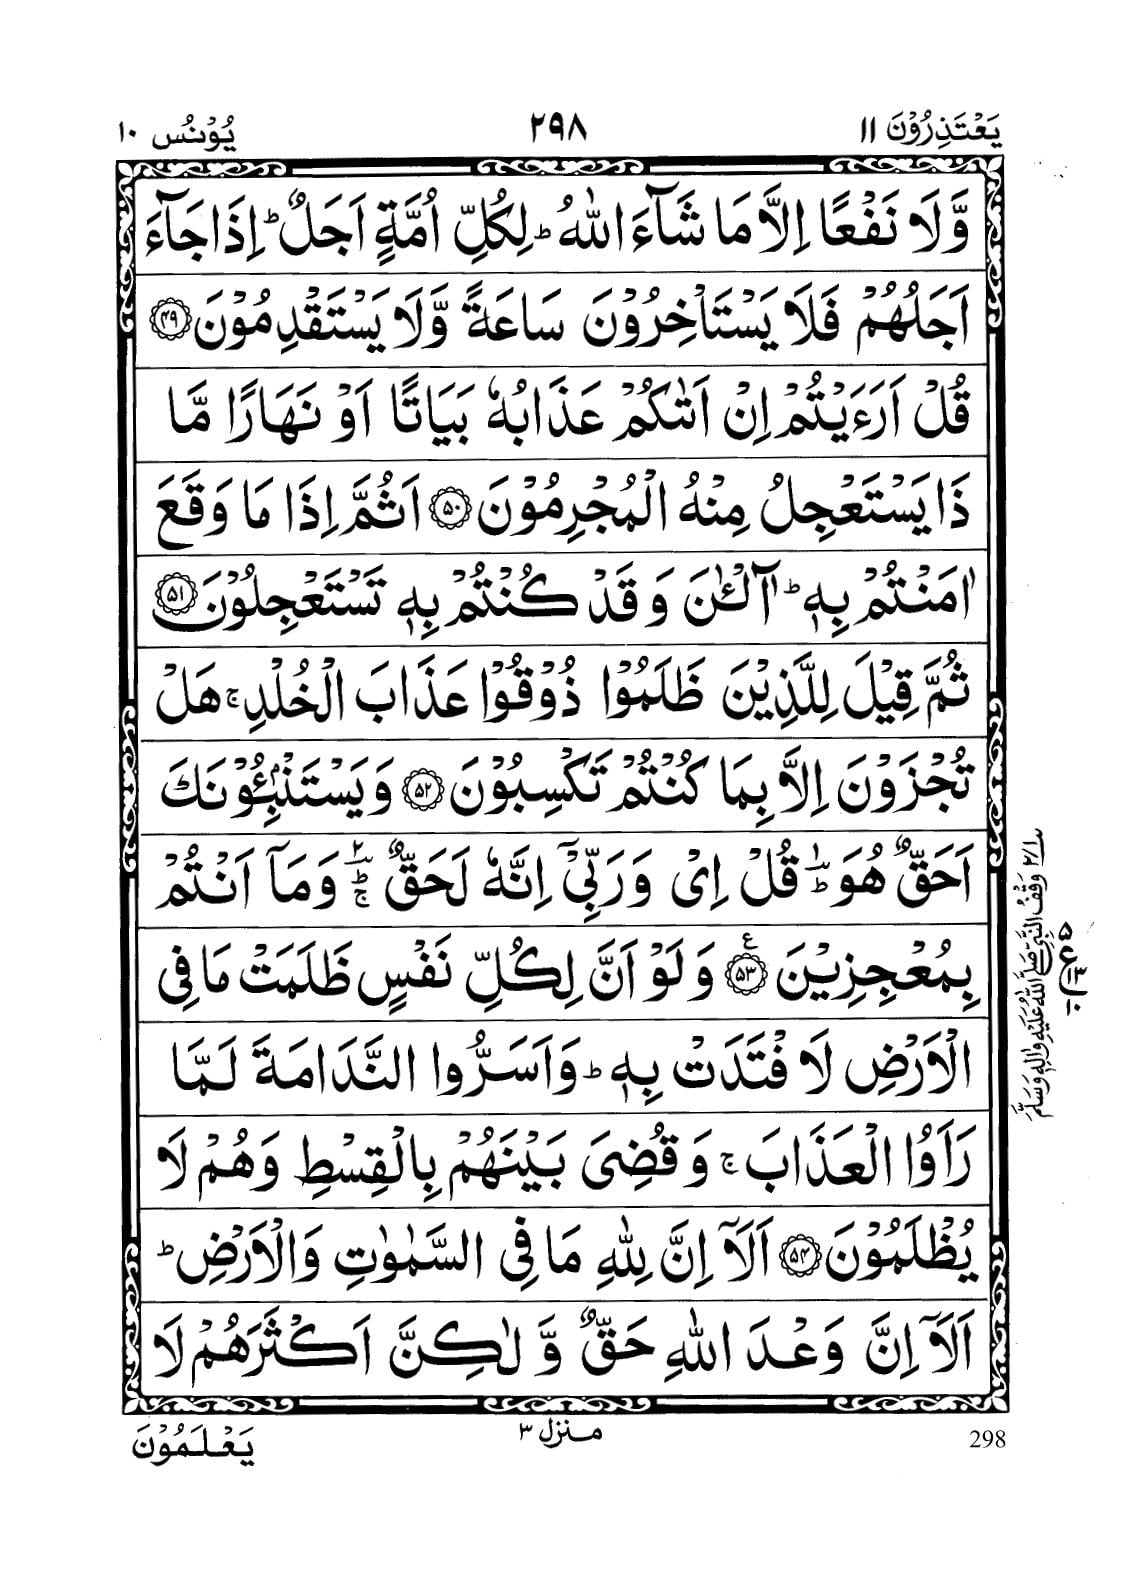 يَعْتَذِرُوْنَ ۱۱
۲۹۸
يُوْنُس ۱۰
وَّلَا نَفْعًا اِلَّا مَا شَآءَ اللّٰهُ ؕ لِكُلِّ اُمَّةٍ اَجَلٌ ؕ اِذَا جَآءَ
اَجَلُهُمْ فَلَا يَسْتَاْخِرُوْنَ سَاعَةً وَّلَا يَسْتَقْدِمُوْنَ ﴿۴۹﴾
قُلْ اَرَءَيْتُمْ اِنْ اَتٰىكُمْ عَذَابُهٗ بَيَاتًا اَوْ نَهَارًا مَّا
ذَا يَسْتَعْجِلُ مِنْهُ الْمُجْرِمُوْنَ ﴿۵۰﴾ اَثُمَّ اِذَا مَا وَقَعَ
اٰمَنْتُمْ بِهٖ ؕ آٰلْـٰٔنَ وَ قَدْ كُنْتُمْ بِهٖ تَسْتَعْجِلُوْنَ ﴿۵۱﴾
ثُمَّ قِيْلَ لِلَّذِيْنَ ظَلَمُوْا ذُوْقُوْا عَذَابَ الْخُلْدِ ۚ هَلْ
تُجْزَوْنَ اِلَّا بِمَا كُنْتُمْ تَكْسِبُوْنَ ﴿۵۲﴾ وَيَسْتَنْۢبِـُٔوْنَكَ
اَحَقٌّ هُوَ ؕ قُلْ اِىْ وَرَبِّىْۤ اِنَّهٗ لَحَقٌّ ؔ ؕ ۚ وَمَاۤ اَنْتُمْ
بِمُعْجِزِيْنَ ﴿۵۳﴾ ع وَلَوْ اَنَّ لِكُلِّ نَفْسٍ ظَلَمَتْ مَا فِى
الْاَرْضِ لَا فْتَدَتْ بِهٖ ؕ وَاَسَرُّوا النَّدَامَةَ لَمَّا
رَاَوُا الْعَذَابَ ۚ وَ قُضِىَ بَيْنَهُمْ بِالْقِسْطِ وَهُمْ لَا
يُظْلَمُوْنَ ﴿۵۴﴾ اَلَاۤ اِنَّ لِلّٰهِ مَا فِى السَّمٰوٰتِ وَالْاَرْضِ ؕ
اَلَاۤ اِنَّ وَعْدَ اللّٰهِ حَقٌّ وَّ لٰكِنَّ اَكْثَرَهُمْ لَا
وَقْفُ النَّبِىِّ صَلَّى اللّٰهُ عَلَيْهِ وَاٰلِهٖ وَسَلَّمَ
يَعْلَمُوْنَ
منزل ۳
298